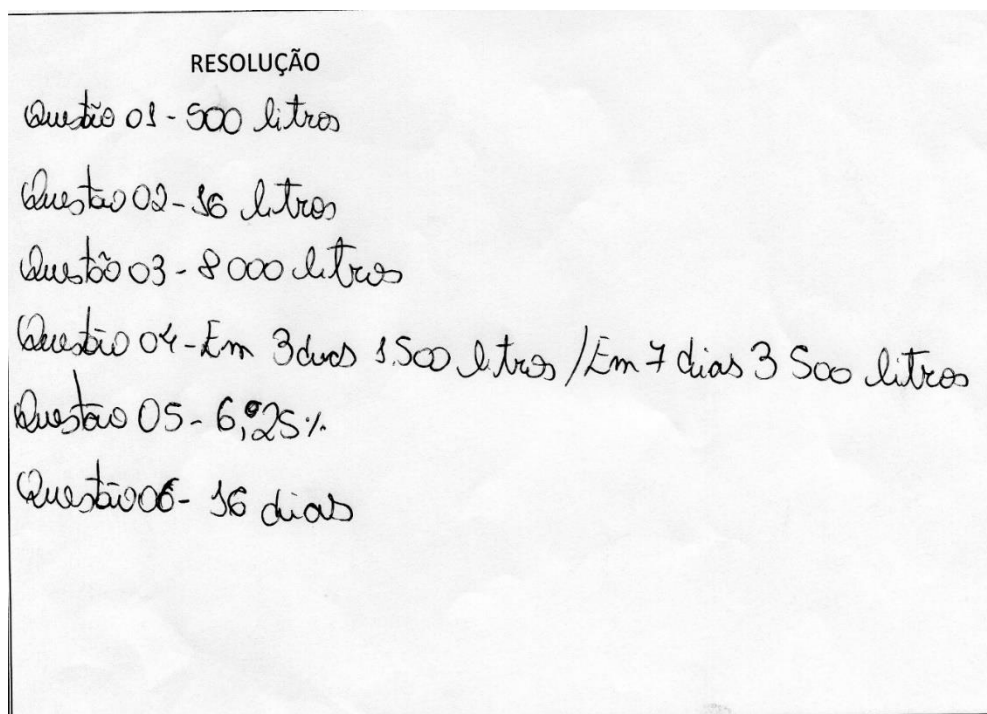 RESOLUÇÃO
Questão 01 - 500 litros
Questão 02 - 16 litros
Questão 03 - 8 000 litros
Questão 04 - Em 3 dias 1.500 litros / Em 7 dias 3 500 litros
Questão 05 - 6,25%
Questão 06 - 16 dias